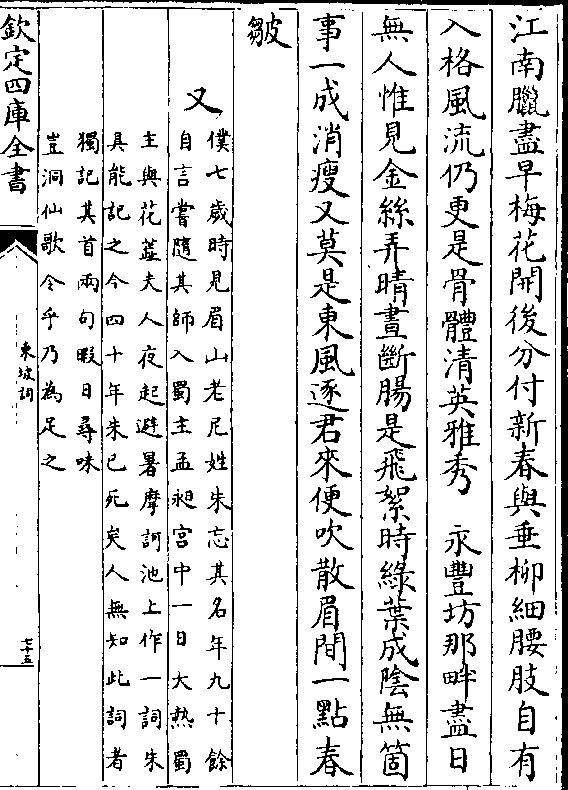 江南臘盡早梅花開後分付新春與垂柳細腰肢自有
入格風流仍更是骨體清英雅秀　永豐坊那畔盡日
無人惟見金絲弄晴晝斷腸是飛絮時綠葉成陰無箇
事一成消瘦又莫是東風逐君來便吹散眉間一點春
皺
又
僕七歲時見眉山老尼姓朱忘其名年九十餘
自言嘗隨其師入蜀主孟昶宮中一日大熱蜀
主與花蕊夫人夜起避暑摩訶池上作一詞朱
具能記之今四十年朱已死矣人無知此詞者
獨記其首兩句暇日尋味
豈洞仙歌令乎乃為足之
欽定四庫全書
東坡詞
七十五